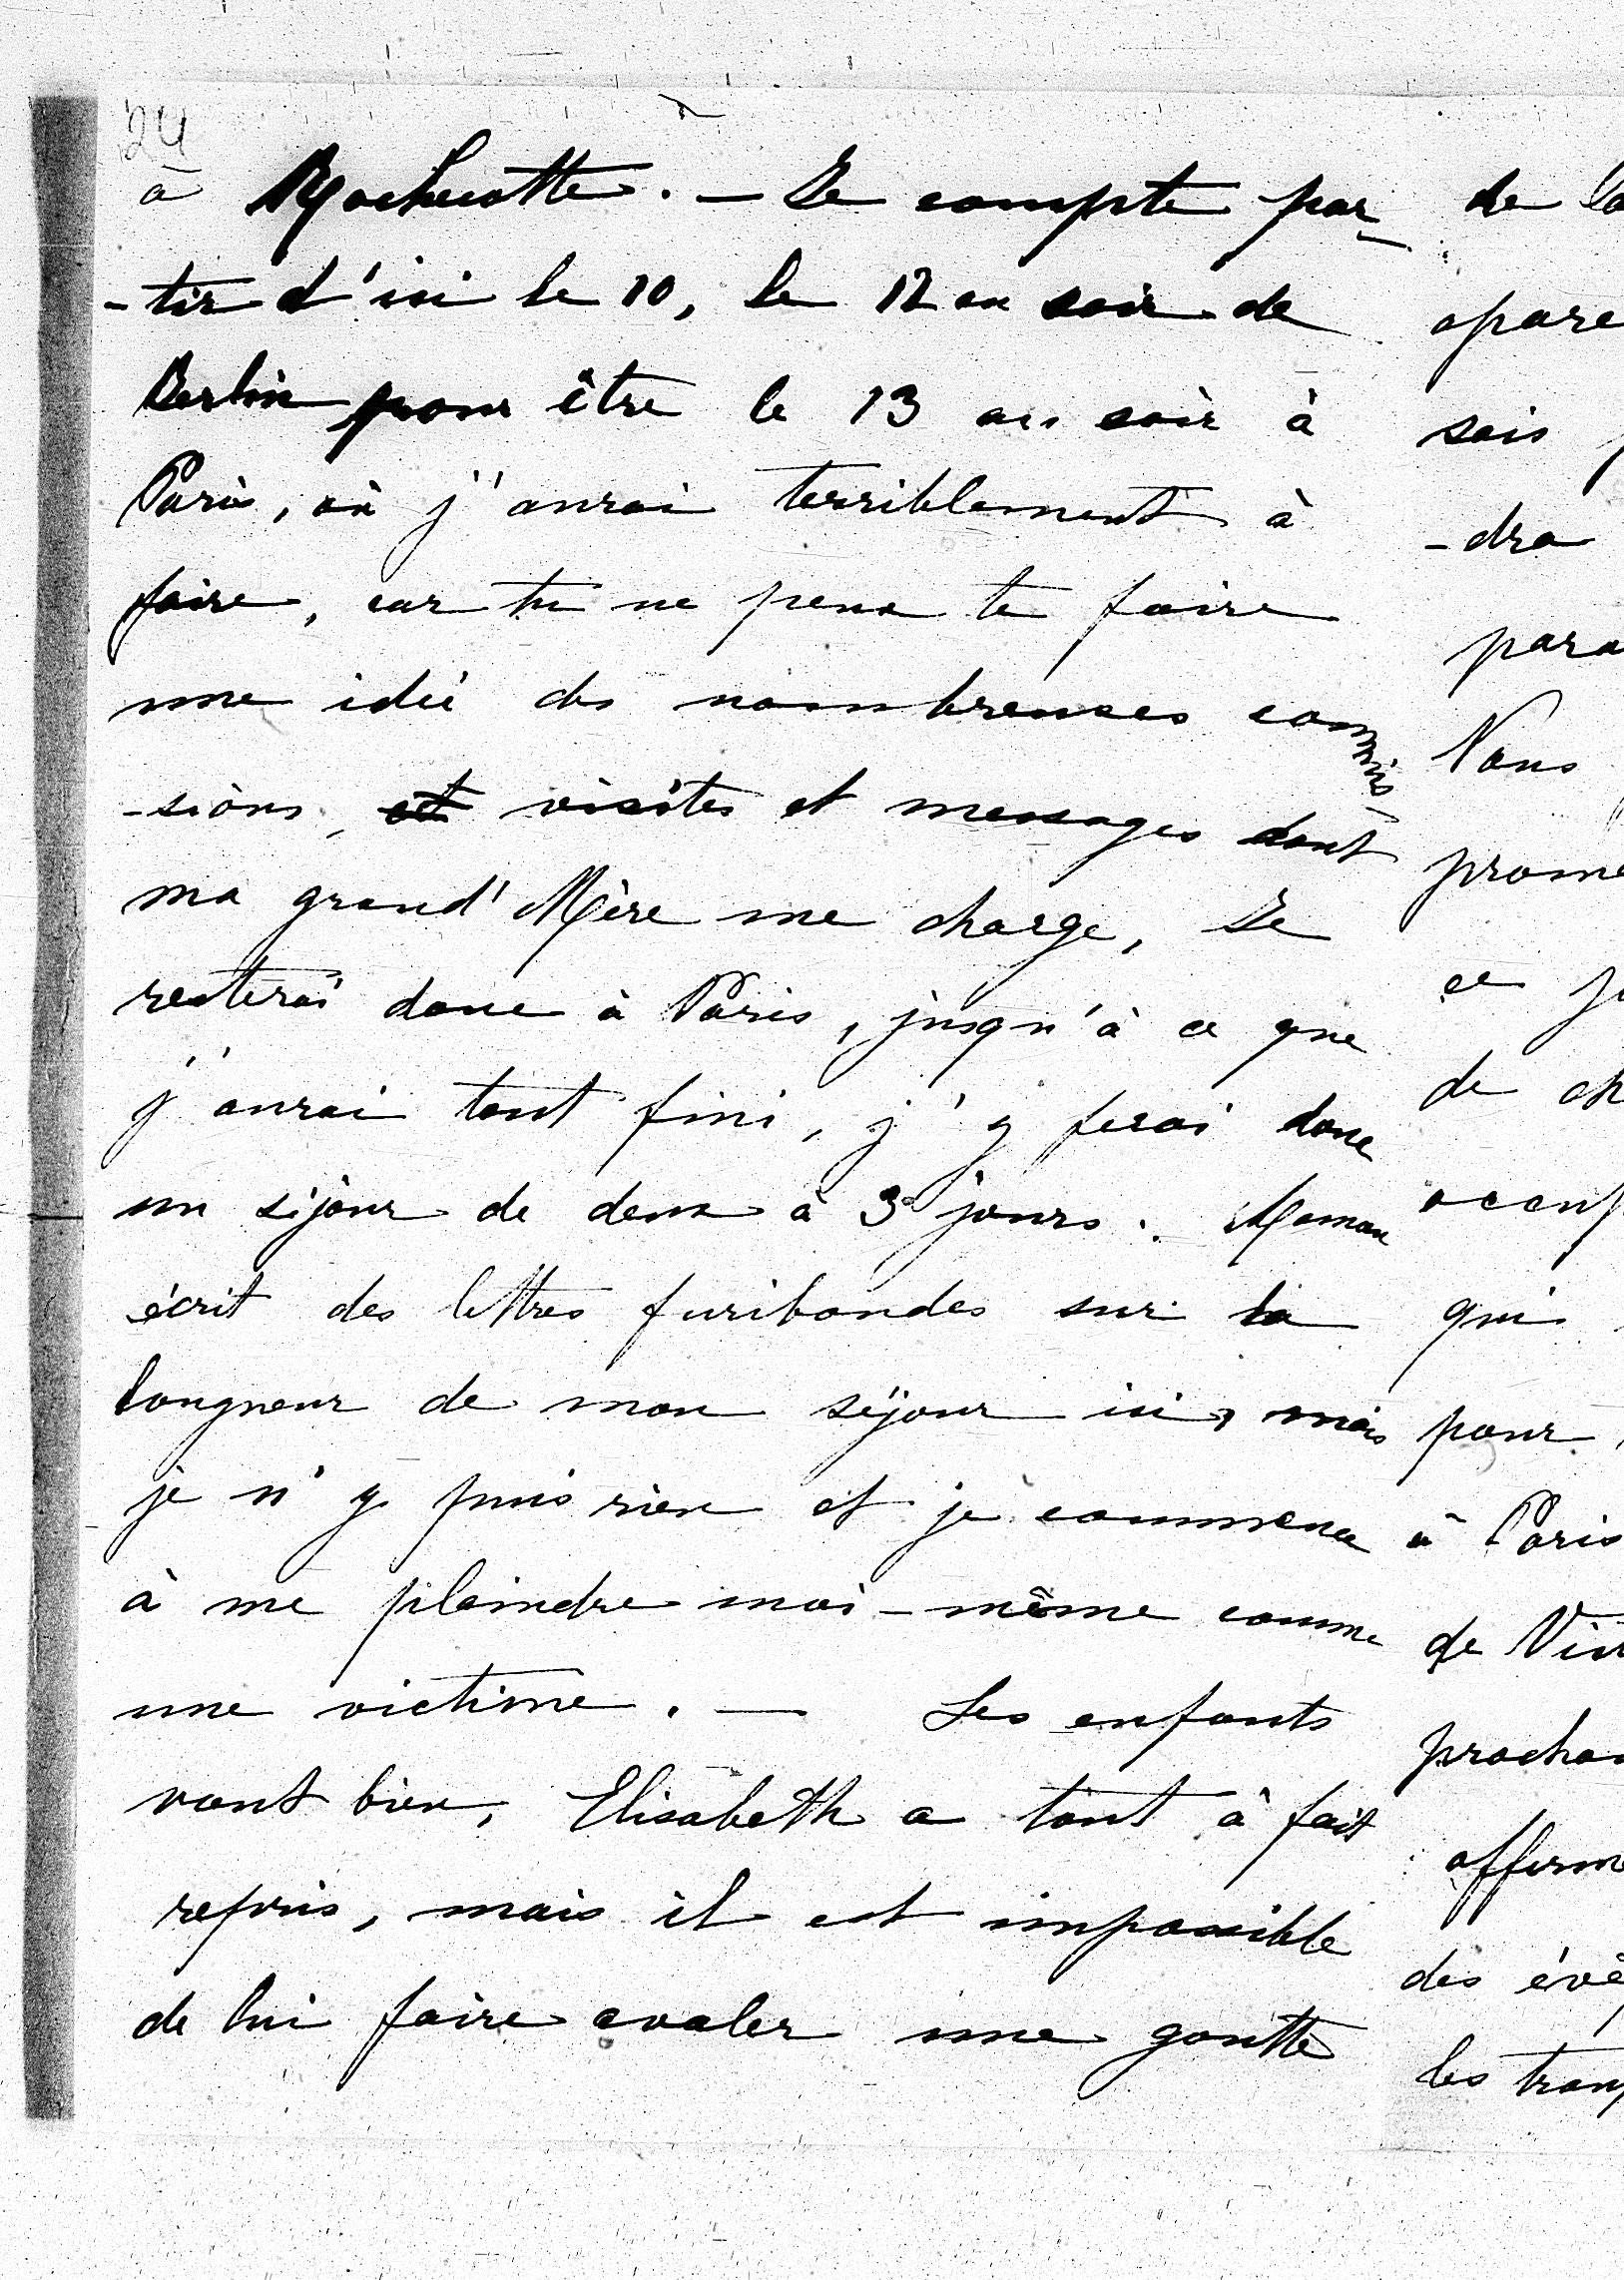 24
à Rochecotte. — Je compte par-
-tir d'ici le 10, le 12 au soir de
Berlin pour être le 13 au soir à
Paris, où j'aurai terriblement à
faire, car tu ne peux te faire
une idée des nombreuses commis-
-sions, et visites et messages dont
ma grand'Mère me charge, Je
resterai donc à Paris, jusqu'à ce que
j'aurai tout fini, j'y ferai donc
un séjour de deux à 3 jours. Maman
écrit des lettres furibondes sur la
longueur de mon séjour ici, mais
je n'y puis rien et je commence
à me plaindre moi-même comme
une victime. — Les enfants
vont bien, Elisabeth a tout à fait
repris, mais il est impossible
de lui faire avaler une goutte
de la
apare
sais
-dra
para
Nous
prome
ce
de ch
occup
qui
pour
à Paris
de Vie
prochai
affirm
des évê
les tran